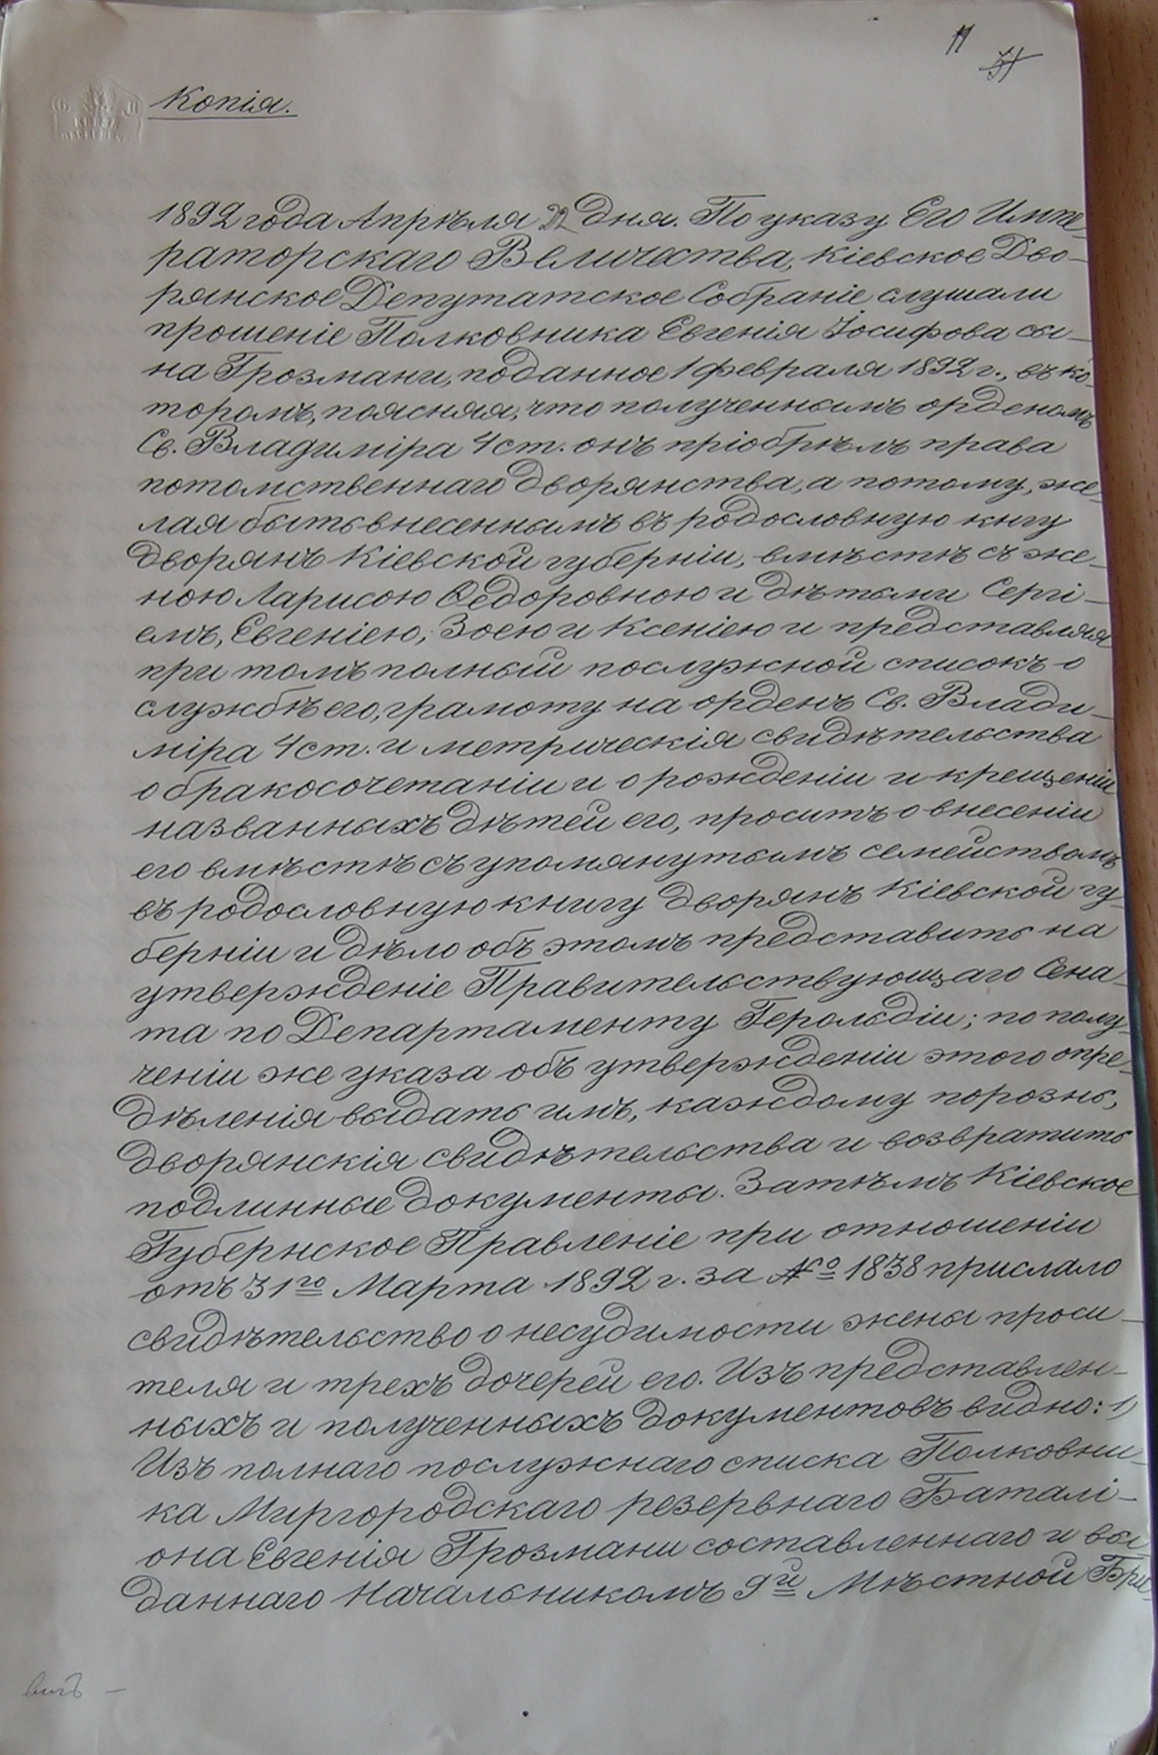 11
Копія.
1892 года Апрѣля 22 дня. По указу Его Импе-
раторскаго Величества, Кіевское Дво-
рянское Депутатское Собраніе слушали
прошеніе Полковника Евгенія Іосифова сы-
на Грозмани, поданное 1 февраля 1892 г., въ ко-
торомъ, поясняя, что полученнымъ орденомъ
Св. Владиміра 4 ст. онъ пріобрѣлъ права
потомственнаго дворянства, а потому, же-
лая быть внесеннымъ въ родословную книгу
дворянъ Кіевской губерніи, вмѣстѣ съ же-
ною Ларисою Ѳедоровною и дѣтьми Сергі-
емъ, Евгеніею, Зоею и Ксеніею и представляя
при томъ полный послужной списокъ о
службѣ его, грамоту на орденъ Св. Влади-
міра 4 ст. и метрическія свидѣтельства
о бракосочетаніи и о рожденіи и крещеніи
названныхъ дѣтей его, проситъ о внесеніи
его вмѣстѣ съ упомянутымъ семействомъ
въ родословную книгу дворянъ Кіевской гу-
берніи и дѣло объ этомъ представить на
утвержденіе Правительствующаго Сена-
та по Департаменту Герольдіи; по полу-
ченіи же указа объ утвержденіи этого опре-
дѣленія выдать имъ, каждому порознь,
дворянскія свидѣтельства и возвратить
подлинные документы. Затѣмъ Кіевское
Губернское Правленіе при отношеніи
отъ 31го Марта 1892 г. за № 1838 прислало
свидѣтельство о несудимости жены проси-
теля и трехъ дочерей его. Изъ представлен-
ныхъ и полученныхъ документовъ видно: 1)
Изъ полнаго послужнаго списка Полковни-
ка Миргородскаго резервнаго Баталі-
она Евгенія Грозмани составленнаго и вы-
даннаго Начальникомъ 9й Мѣстной Бри-